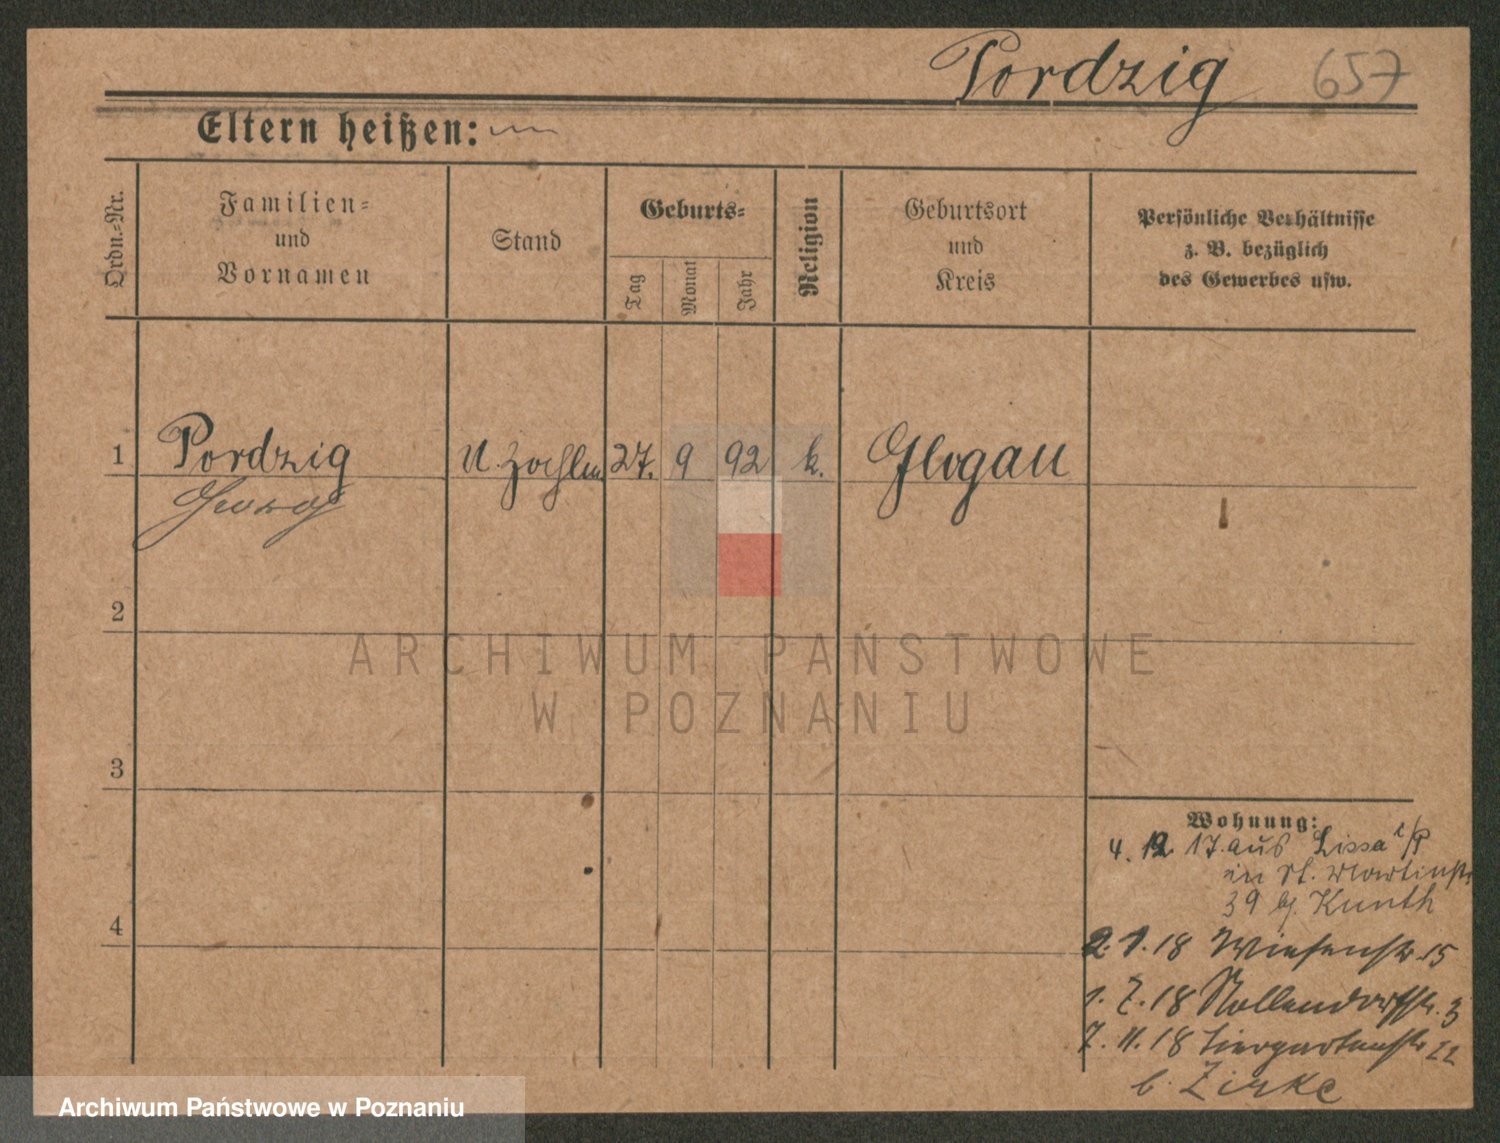 Pordzig 657
Eltern heißen:
Ordn.=Nr.
Familien=
und
Vornamen
Stand
Geburts=
Tag
Monat
Jahr
Religion
Geburtsort
und
Kreis
Persönliche Verhältnisse
z. B. bezüglich
des Gewerbes usw.
1 Pordzig 27. 9 92 k. Glogau
Georg
2
3
4
Wohnung:
4. 12 17. aus Lissa i/P
in St. Martinstr.
39 bj. Kunth
2. 1. 18 Wiesenstr. 15
1. 7. 18 Nollendorfstr. 3
7. 11. 18 Tiergartenstr
b. Zirke
ARCHIWUM PAŃSTWOWE
W POZNANIU
Archiwum Państwowe w Poznaniu